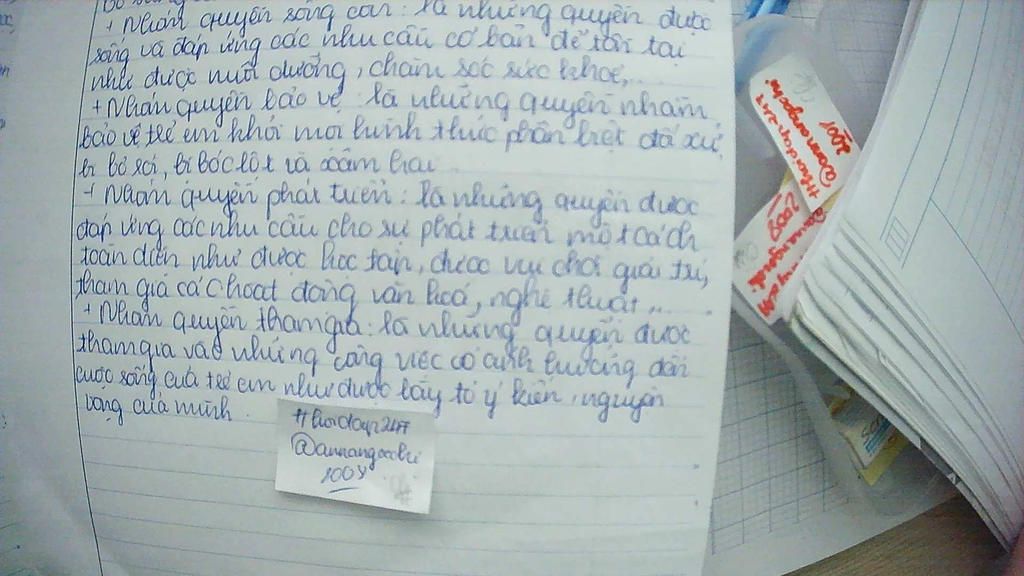 + Nhóm quyền sống còn: là những quyền được
sống và đáp ứng các nhu cầu cơ bản để tồn tại
như được nuôi dưỡng, chăm sóc sức khoẻ,...
+ Nhóm quyền bảo vệ: là những quyền nhằm
bảo vệ trẻ em khỏi mọi hình thức phân biệt đối xử,
bị bỏ rơi, bị bóc lột và xâm hại.
+ Nhóm quyền phát triển: là những quyền được
đáp ứng các nhu cầu cho sự phát triển một cách
toàn diện như được học tập, được vui chơi giải trí,
tham gia các hoạt động văn hoá, nghệ thuật,...
+ Nhóm quyền tham gia: là những quyền được
tham gia vào những công việc có ảnh hưởng đến
cuộc sống của trẻ em như được bày tỏ ý kiến, nguyện
vọng của mình.
#hoidap247
1008
#hoidap247
2001
2009